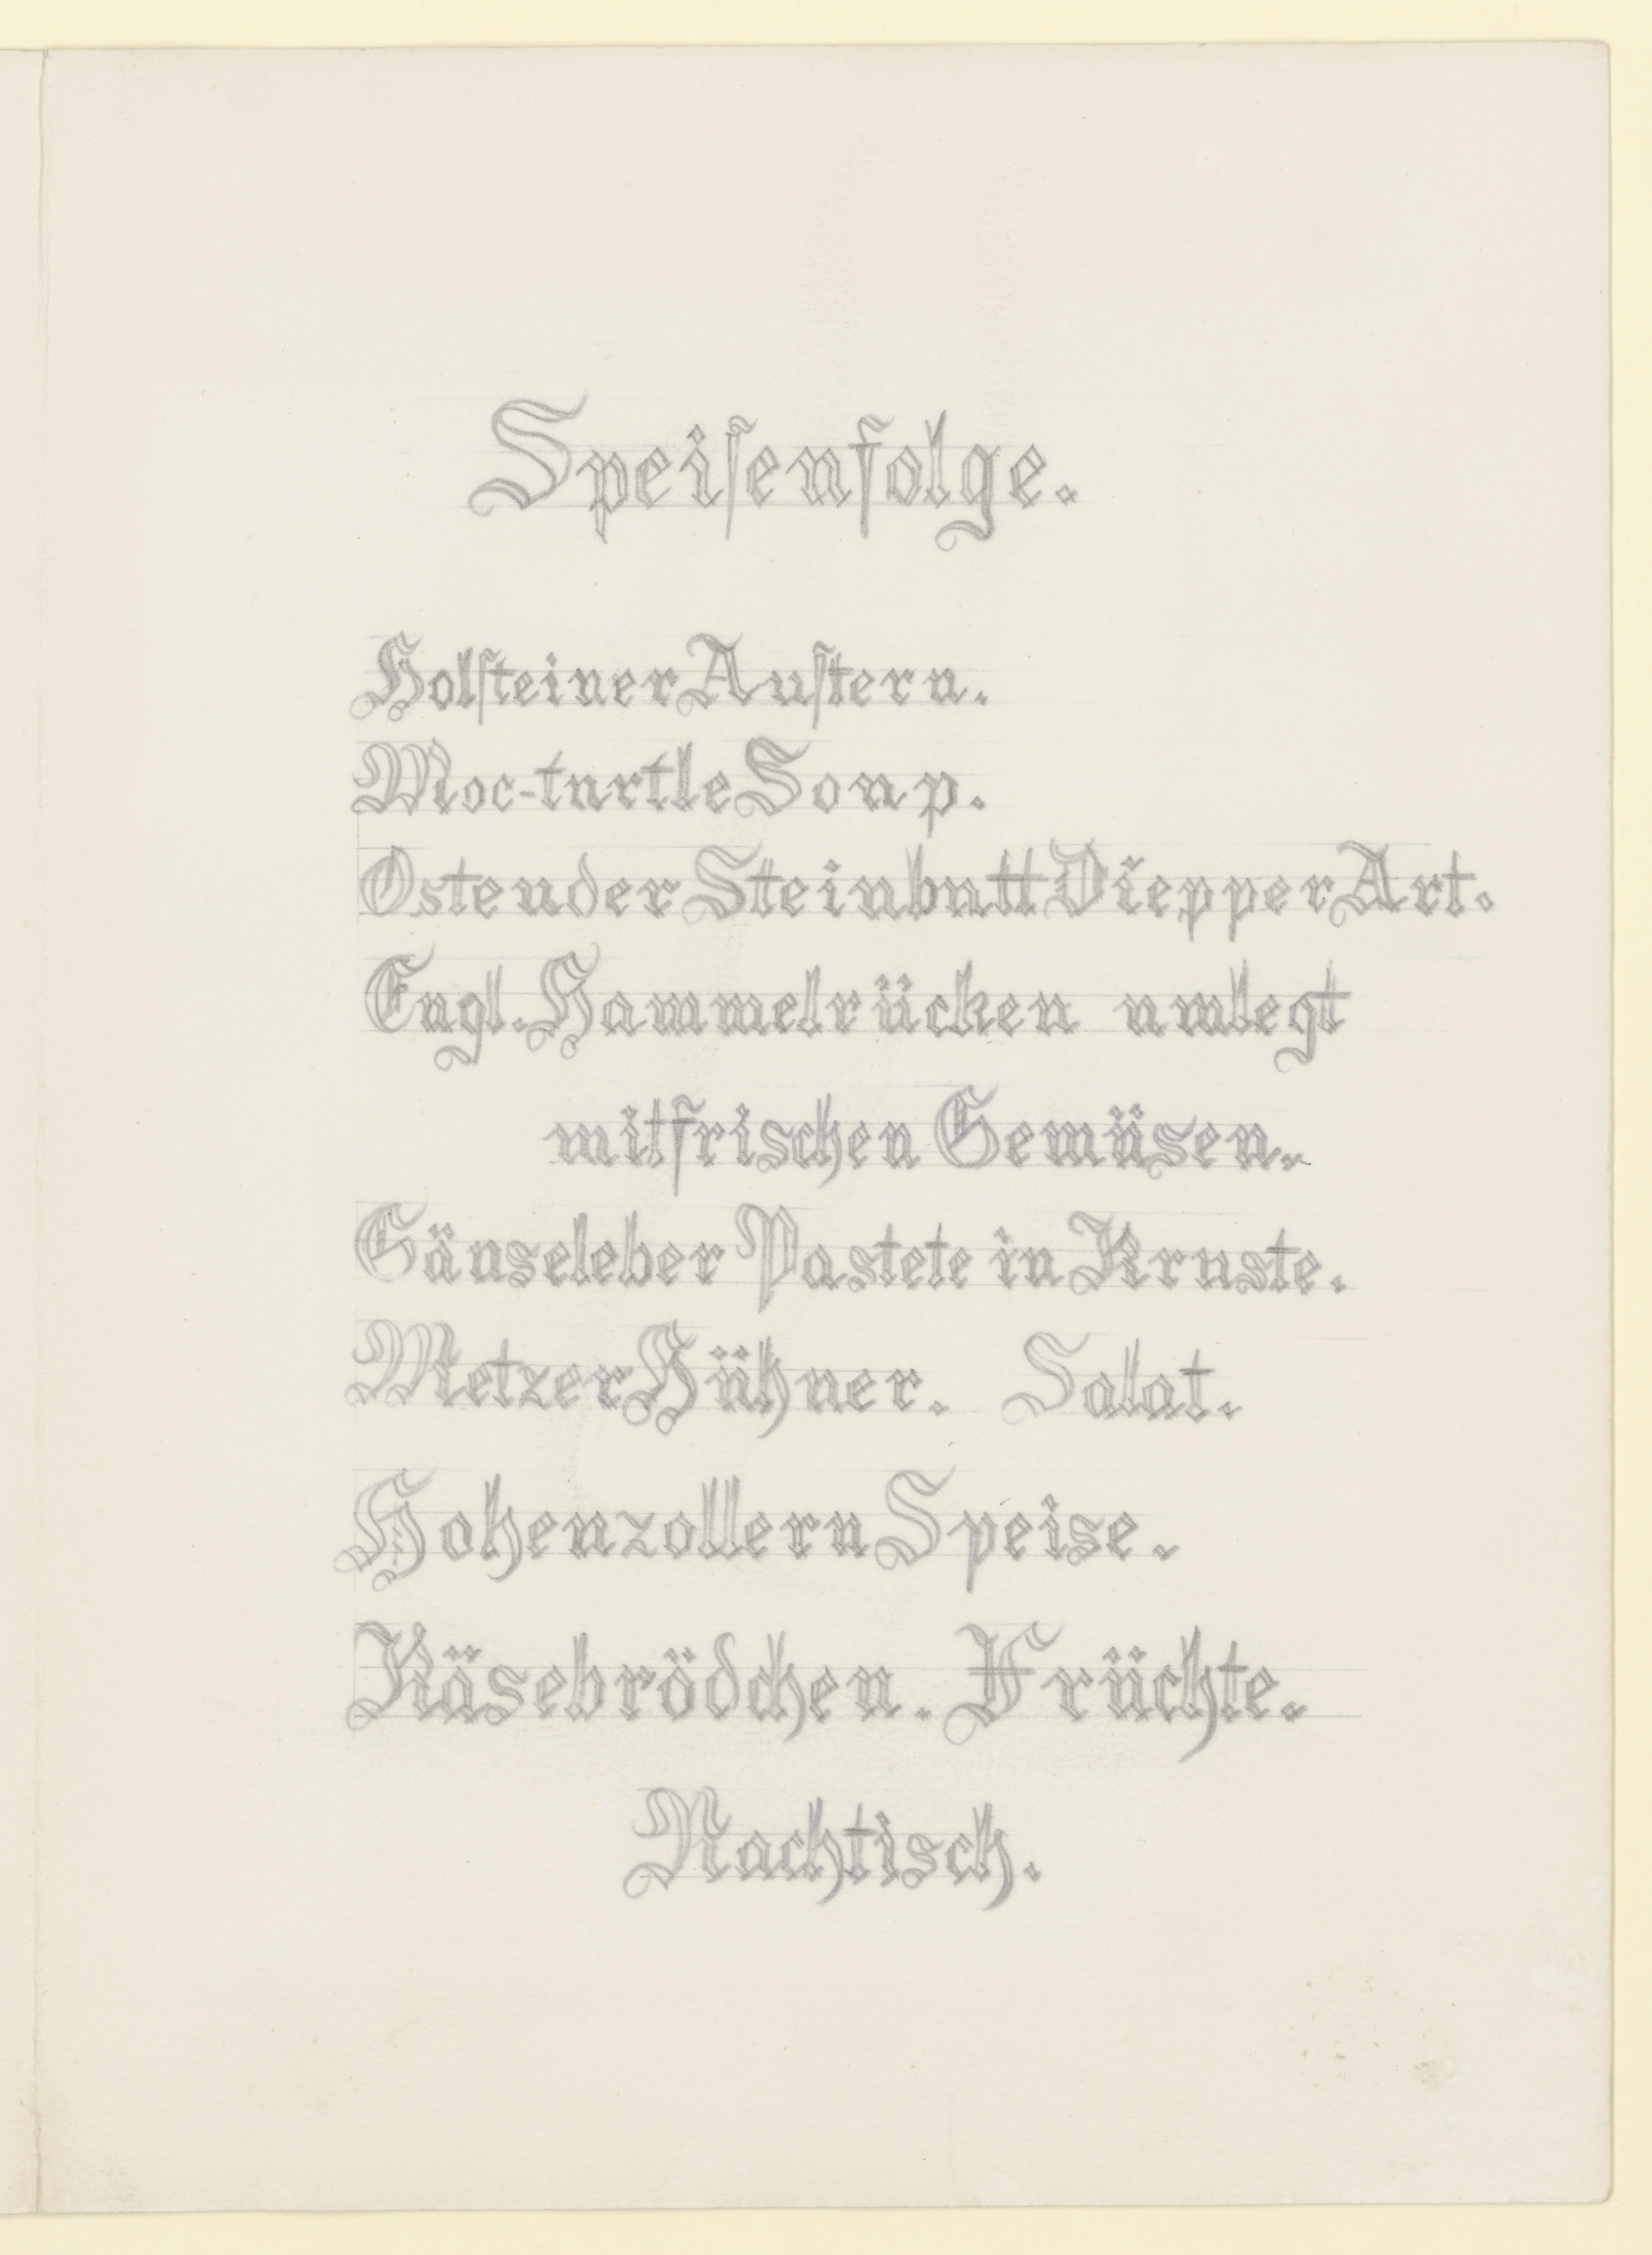 Speiſenfolge.
Holſteiner Auſtern.
Moc-turtle Soup.
Ostender Steinbutt Diepper Art.
Engl. Hammelrücken umlegt
mit frischen Gemüsen.
Gänseleber Pastete in Kruste.
Metzer Hühner. Salat.
Hohenzollern Speise.
Käsebrödchen. Früchte.
Nachtisch.